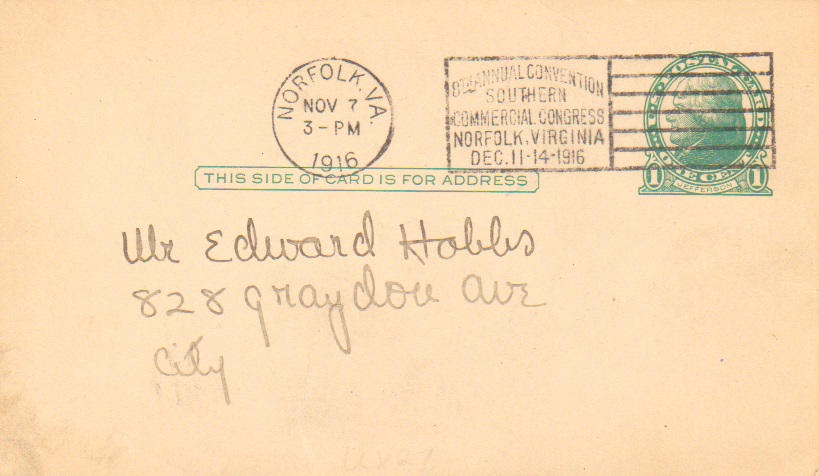 NORFOLK, VA.
NOV 7
3-PM
1916
8TH ANNUAL CONVENTION
SOUTHERN
COMMERCIAL CONGRESS
NORFOLK, VIRGINIA
DEC. 11-14-1916
U.S. POSTAL CARD
1 ONE CENT 1
JEFFERSON
THIS SIDE OF CARD IS FOR ADDRESS
Mr Edward Hobbs
828 Graydon Ave
City
UX27